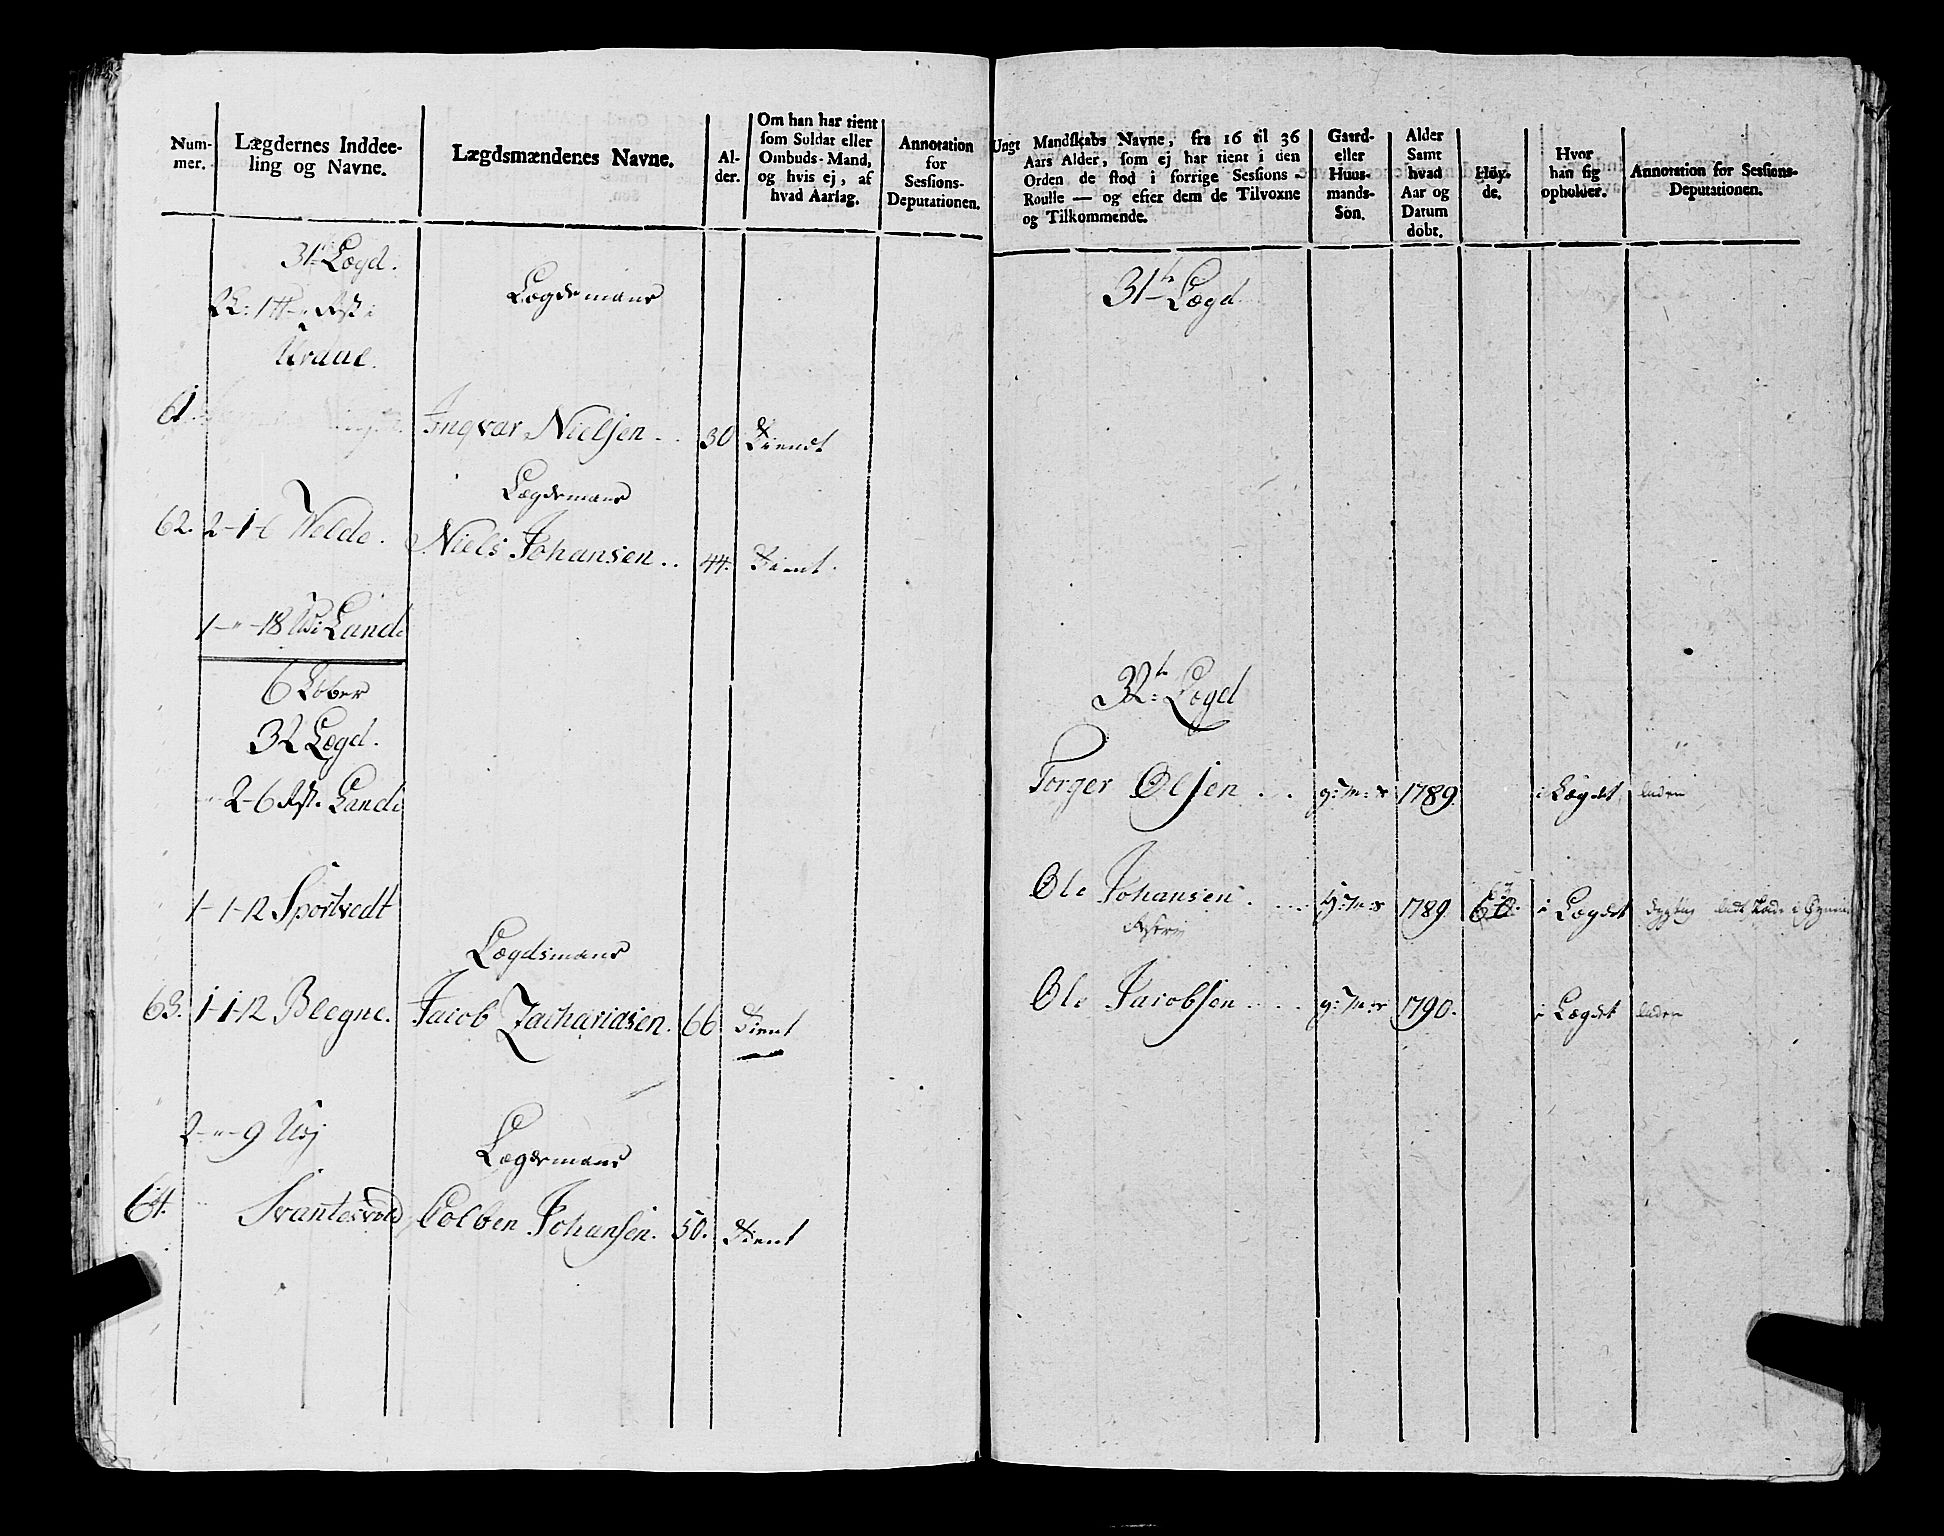 Num-
mer.
Lægdernes Inddee-
ling og Navne.
Lægdsmændenes Navne.
Al-
der.
Om han har tient
som Soldat eller
Ombuds-Mand,
og hvis ej, af
hvad Aarsag.
Annotation
for
Sessions-
Deputationen.
31te Lægd.
Lægdsmand
61.
Ingvar Nielsen
30
Tiendt
Lægdsmand
62. 2-1-6 Welde.
Niels Johansen
44.
Tient.
1-"-18 Land
6 Løber
32 Lægd.
"2-6 Land
1-1-12 Sportvedt
Lægdsmand
63. 1-1-12 Bleegne.
Jacob Zachariasen.
66.
Tient
2-"-9
Lægdsmand
64.
Svantesvold
Colben Johansen.
50.
Tient
Ungt Mandskabs Navne, fra 16 til 36
Aars Alder, som ej har tient i den
Orden de stod i forrige Sessions-
Roulle — og efter dem de Tilvoxne
og Tilkommende.
Gaard-
eller
Huus-
mands-
Søn.
Alder
Samt
hvad
Aar og
Datum
døbt.
Høy-
de.
Hvor
han sig
opholder.
Annotation for Sessions-
Deputationen.
31te Lægd
32te Lægd
Torger Olsen
g:m:s
1789.
i Lægdet
Ole Johansen
H:m:s
1789
i Lægdet
Ole Jacobsen
g:m:s
1790.
i Lægdet